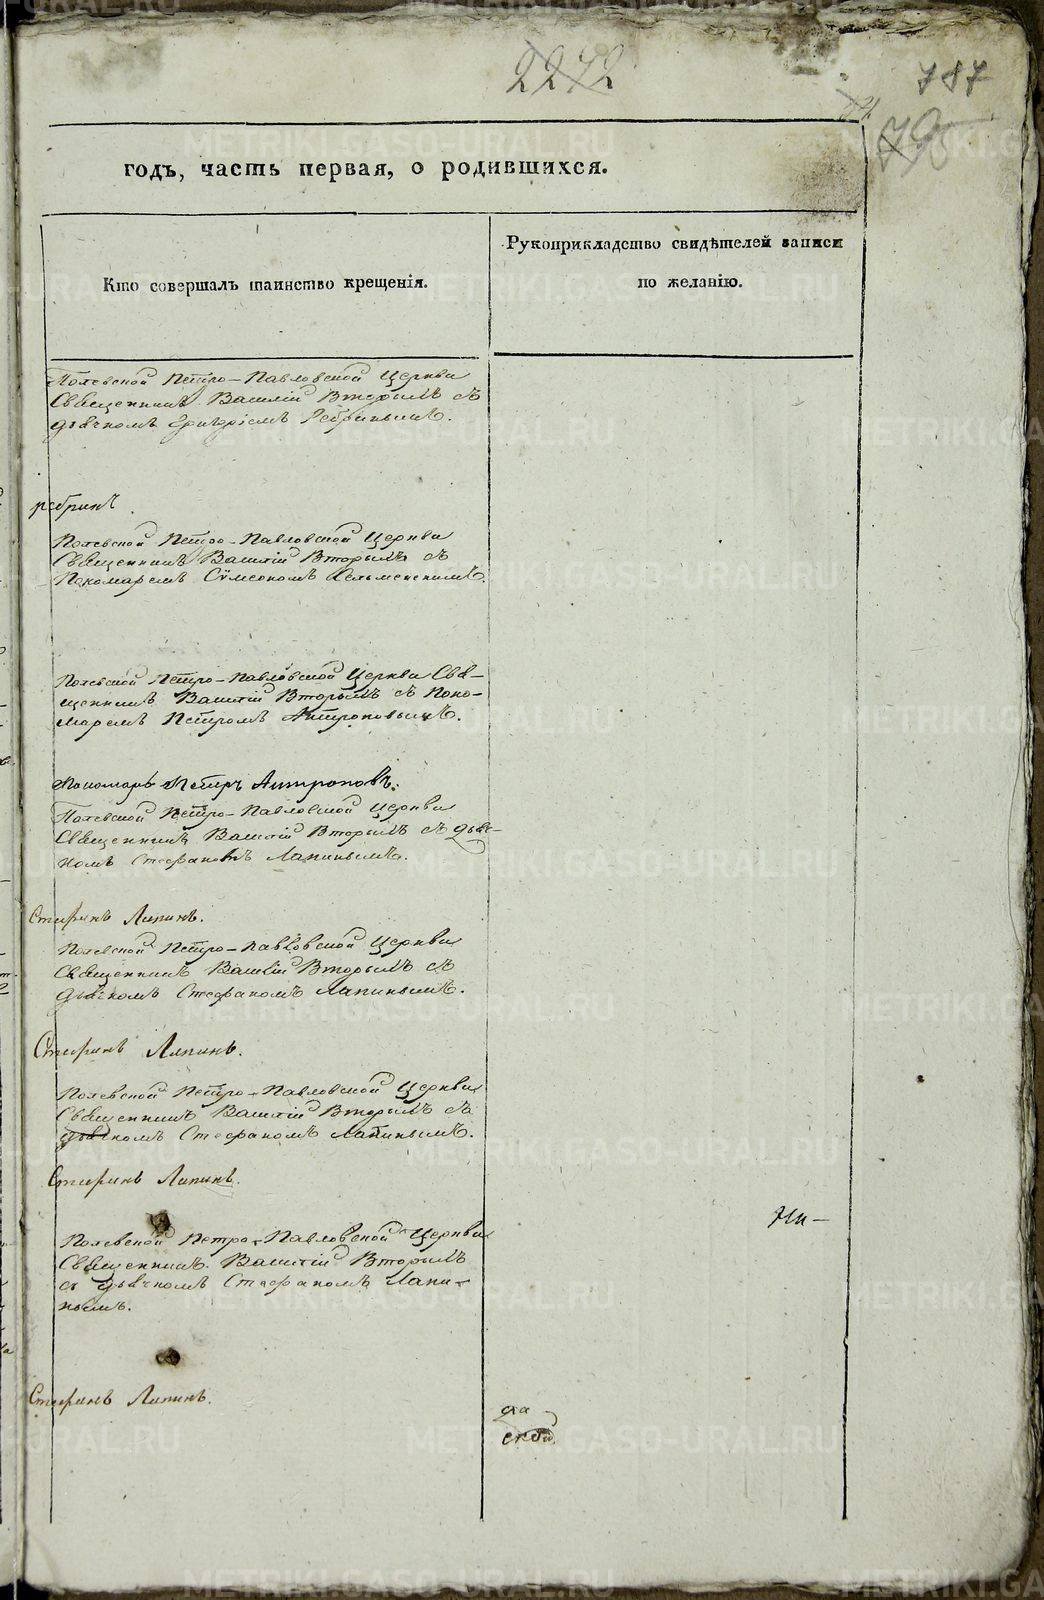 2272
787
годъ, часть первая, о родившихся.
Кто совершалъ таинство крещенія.
Рукоприкладство свидѣтелей записи
по желанію.
Полевской Петро-Павловской Церкви
Священникъ Василій Вторыхъ съ
дьячкомъ Ребринымъ.
ребринъ.
Полевской Петро-Павловской Церкви
Священникъ Василій Вторыхъ съ
Пономаремъ Сѵмеономъ
Полевской Петро-Павловской Церкви Свя-
щенникъ Василій Вторыхъ съ Поно-
маремъ Петромъ Антроповымъ.
Пономарь Петръ Антроповъ.
Полевской Петро-Павловской Церкви
Священникъ Василій Вторыхъ съ дьяч-
комъ Стефаномъ Лапинымъ.
Стефанъ Лапинъ.
Полевской Петро-Павловской Церкви
Священникъ Василій Вторыхъ съ
дьячкомъ Стефаномъ Лапинымъ.
Стефанъ Лапинъ.
Полевской Петро-Павловской Церкви
Священникъ Василій Вторыхъ съ
дьячкомъ Стефаномъ Лапинымъ.
Стефанъ Лапинъ.
Полевской Петро-Павловской Церкви
Священникъ Василій Вторыхъ
съ дьячкомъ Стефаномъ Лапи-
нымъ.
Ни-
Стефанъ Лапинъ.
METRIKI.GASO-URAL.RU